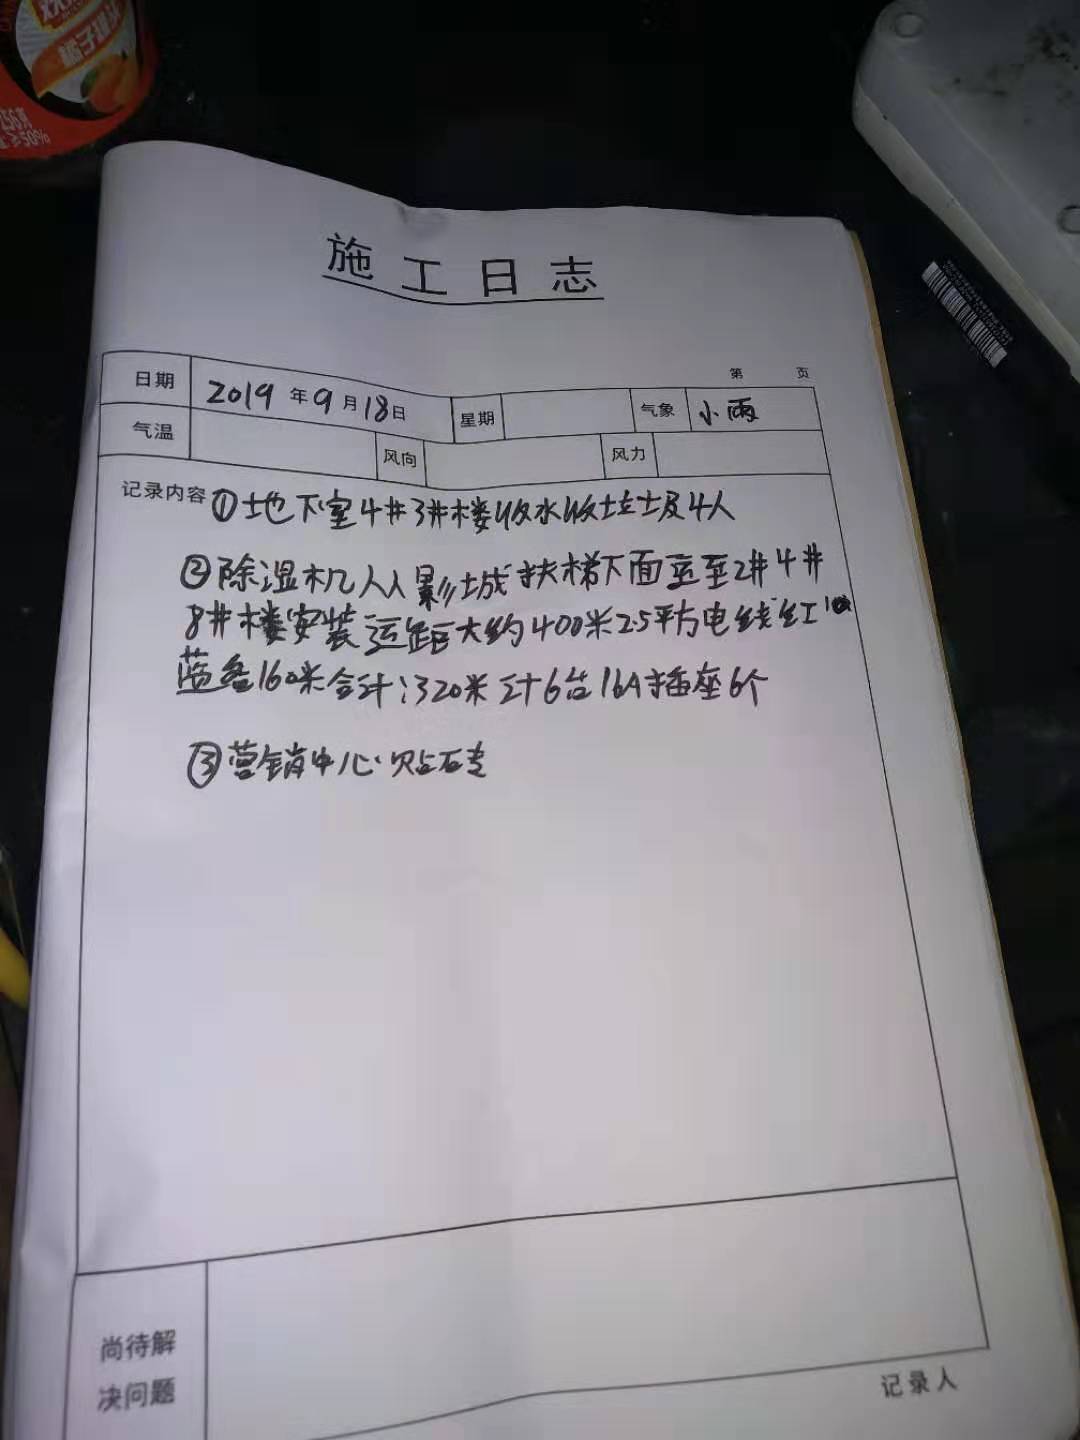 橘子罐头
256克
≥50%
施工日志
第 页
日期 2019年9月18日 星期 气象 小雨
气温 风向 风力
记录内容 ①地下室4#3#楼收水收垃圾4人
②除湿机从影城扶梯下面至至2#4#
8#楼安装运距大约400米2.5平方电线红
蓝各160米合计:320米计6台16A插座6个
③营销中心贴砖
尚待解
决问题
记录人